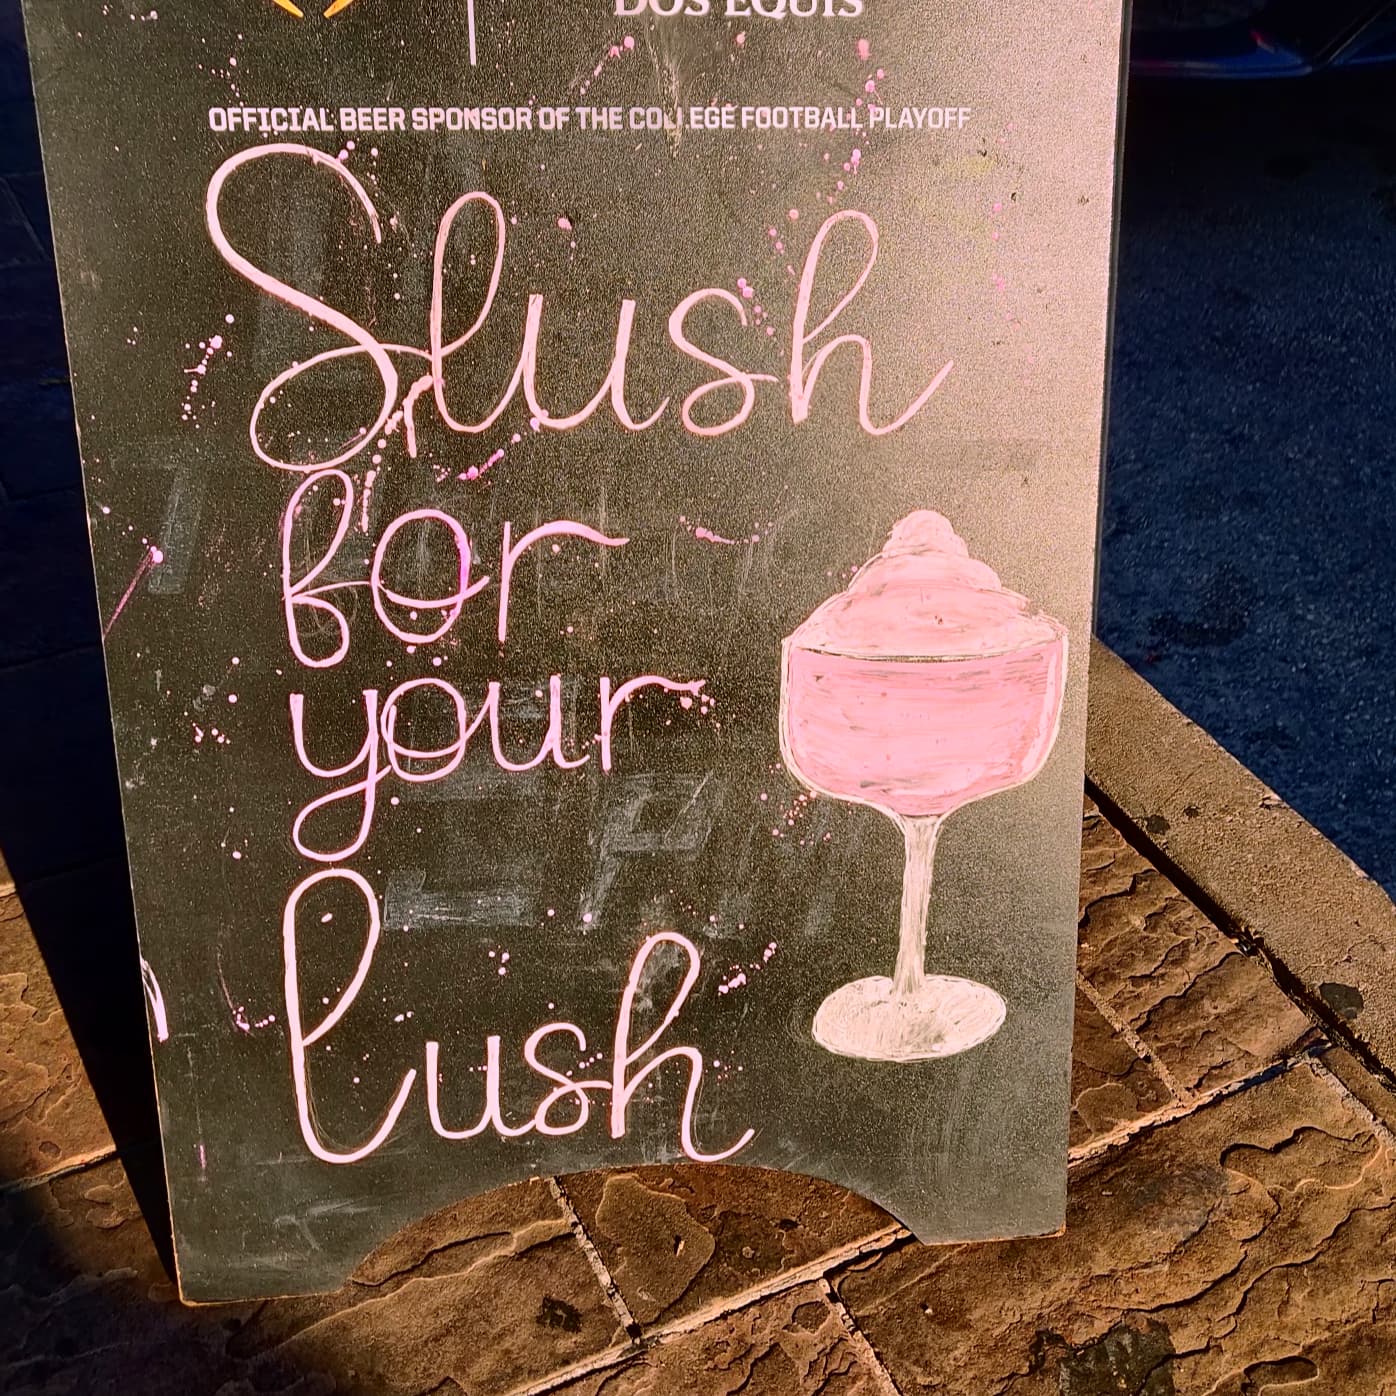 DOS EQUIS
OFFICIAL BEER SPONSOR OF THE COLLEGE FOOTBALL PLAYOFF
Slush
for
your
lush